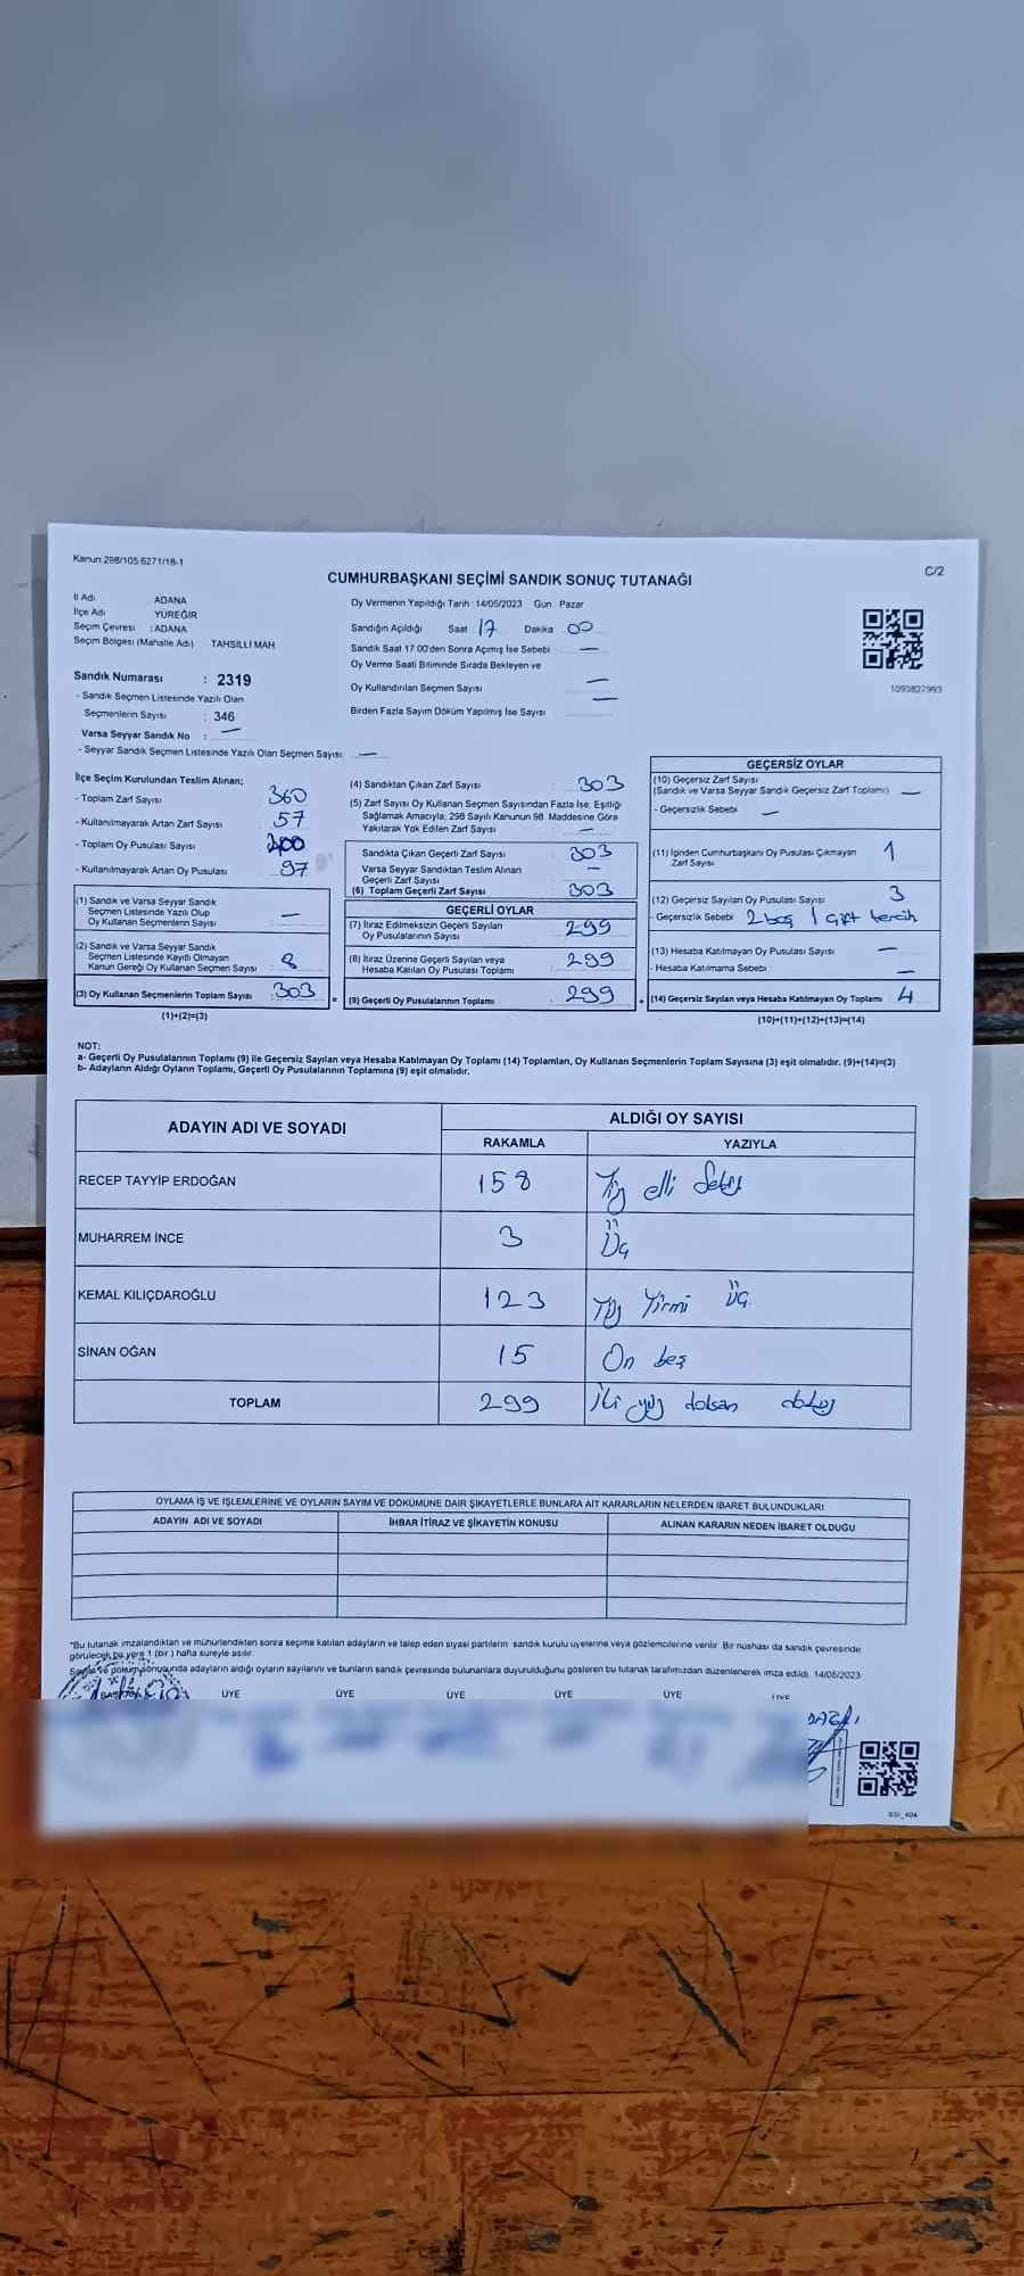 Kanun 298/105 6271/18-1
CUMHURBAŞKANI SEÇİMİ SANDIK SONUÇ TUTANAĞI
C/2
İl Adı ADANA
İlçe Adı YÜREĞİR
Seçim Çevresi : ADANA
Seçim Bölgesi (Mahalle Adı) TAHSİLLİ MAH
Sandık Numarası : 2319
- Sandık Seçmen Listesinde Yazılı Olan
Seçmenlerin Sayısı : 346
Varsa Seyyar Sandık No : —
- Seyyar Sandık Seçmen Listesinde Yazılı Olan Seçmen Sayısı —
Oy Vermenin Yapıldığı Tarih : 14/05/2023 Gün : Pazar
Sandığın Açıldığı Saat 17 Dakika 00
Sandık Saat 17:00'den Sonra Açılmış İse Sebebi —
Oy Verme Saati Bitiminde Sırada Bekleyen ve
Oy Kullandırılan Seçmen Sayısı —
Birden Fazla Sayım Döküm Yapılmış İse Sayısı —
1093827993
İlçe Seçim Kurulundan Teslim Alınan;
- Toplam Zarf Sayısı 360
- Kullanılmayarak Artan Zarf Sayısı 57
- Toplam Oy Pusulası Sayısı 400
- Kullanılmayarak Artan Oy Pusulası 97
(1) Sandık ve Varsa Seyyar Sandık
Seçmen Listesinde Yazılı Olup
Oy Kullanan Seçmenlerin Sayısı —
(2) Sandık ve Varsa Seyyar Sandık
Seçmen Listesinde Kayıtlı Olmayan
Kanun Gereği Oy Kullanan Seçmen Sayısı 8
(3) Oy Kullanan Seçmenlerin Toplam Sayısı 303
(1)+(2)=(3)
(4) Sandıktan Çıkan Zarf Sayısı 303
(5) Zarf Sayısı Oy Kullanan Seçmen Sayısından Fazla İse, Eşitliği
Sağlamak Amacıyla; 298 Sayılı Kanunun 98. Maddesine Göre
Yakılarak Yok Edilen Zarf Sayısı —
Sandıkta Çıkan Geçerli Zarf Sayısı 303
Varsa Seyyar Sandıktan Teslim Alınan
Geçerli Zarf Sayısı —
(6) Toplam Geçerli Zarf Sayısı 303
GEÇERLİ OYLAR
(7) İtiraz Edilmeksizin Geçerli Sayılan
Oy Pusulalarının Sayısı 299
(8) İtiraz Üzerine Geçerli Sayılan veya
Hesaba Katılan Oy Pusulası Toplamı 299
(9) Geçerli Oy Pusulalarının Toplamı 299
GEÇERSİZ OYLAR
(10) Geçersiz Zarf Sayısı
(Sandık ve Varsa Seyyar Sandık Geçersiz Zarf Toplamı) —
- Geçersizlik Sebebi —
(11) İçinden Cumhurbaşkanı Oy Pusulası Çıkmayan
Zarf Sayısı 1
(12) Geçersiz Sayılan Oy Pusulası Sayısı 3
- Geçersizlik Sebebi 2 boş 1 çift tercih
(13) Hesaba Katılmayan Oy Pusulası Sayısı —
- Hesaba Katılmama Sebebi —
(14) Geçersiz Sayılan veya Hesaba Katılmayan Oy Toplamı 4
(10)+(11)+(12)+(13)=(14)
NOT:
a- Geçerli Oy Pusulalarının Toplamı (9) ile Geçersiz Sayılan veya Hesaba Katılmayan Oy Toplamı (14) Toplamları, Oy Kullanan Seçmenlerin Toplam Sayısına (3) eşit olmalıdır. (9)+(14)=(3)
b- Adayların Aldığı Oyların Toplamı, Geçerli Oy Pusulalarının Toplamına (9) eşit olmalıdır.
ADAYIN ADI VE SOYADI
ALDIĞI OY SAYISI
RAKAMLA YAZIYLA
RECEP TAYYİP ERDOĞAN 158 Yüz elli Sekiz
MUHARREM İNCE 3 Üç
KEMAL KILIÇDAROĞLU 123 Yüz Yirmi Üç
SİNAN OĞAN 15 On beş
TOPLAM 299 İki yüz doksan dokuz
OYLAMA İŞ VE İŞLEMLERİNE VE OYLARIN SAYIM VE DÖKÜMÜNE DAİR ŞİKAYETLERLE BUNLARA AİT KARARLARIN NELERDEN İBARET BULUNDUKLARI
ADAYIN ADI VE SOYADI İHBAR İTİRAZ VE ŞİKAYETİN KONUSU ALINAN KARARIN NEDEN İBARET OLDUĞU
*Bu tutanak imzalandıktan ve mühürlendikten sonra seçime katılan adayların ve talep eden siyasi partilerin sandık kurulu üyelerine veya gözlemcilerine verilir. Bir nüshası da sandık çevresinde
görülecek bir yere 1 (bir) hafta süreyle asılır.
Sayım ve döküm sonucunda adayların aldığı oyların sayılarını ve bunların sandık çevresinde bulunanlara duyurulduğunu gösteren bu tutanak tarafımızdan düzenlenerek imza edildi. 14/05/2023
BAŞKAN ÜYE ÜYE ÜYE ÜYE ÜYE ÜYE